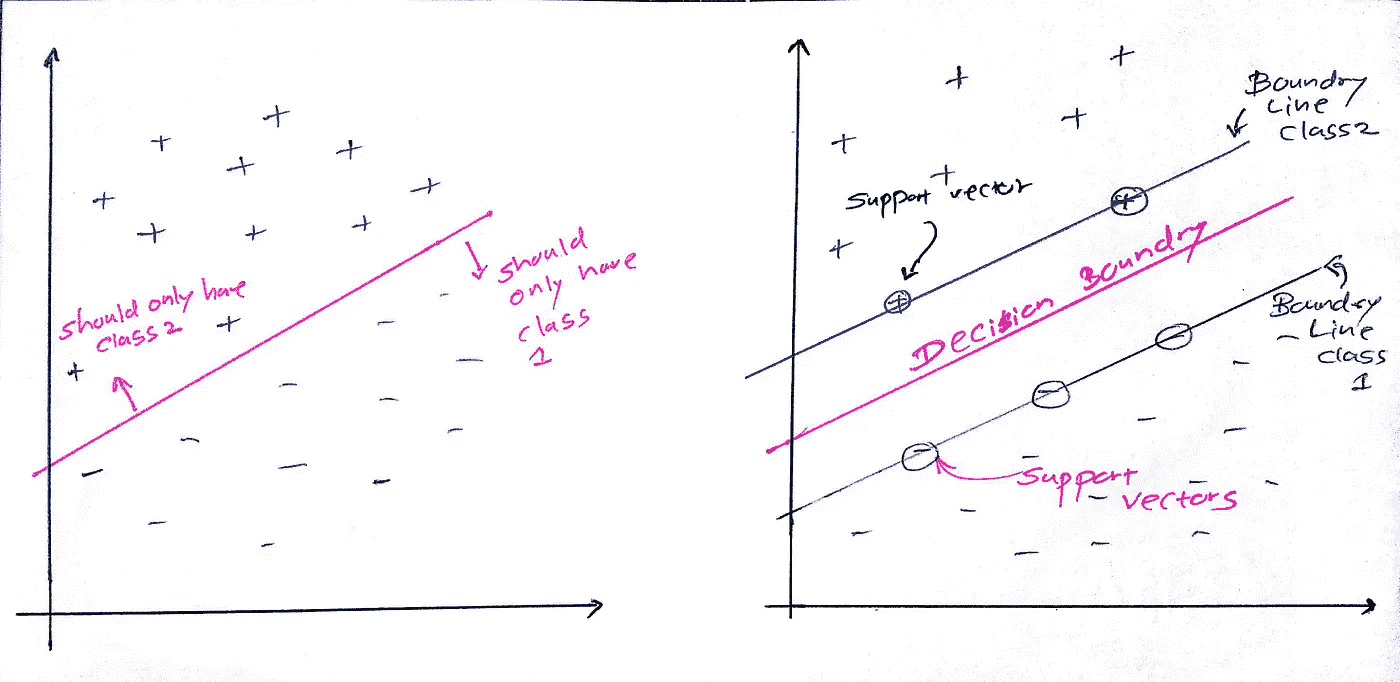 should only have
class 2
should
only have
class
1
Boundry
Line
class 2
support vector
Decision Boundry
Boundry
Line
class
1
support
vectors